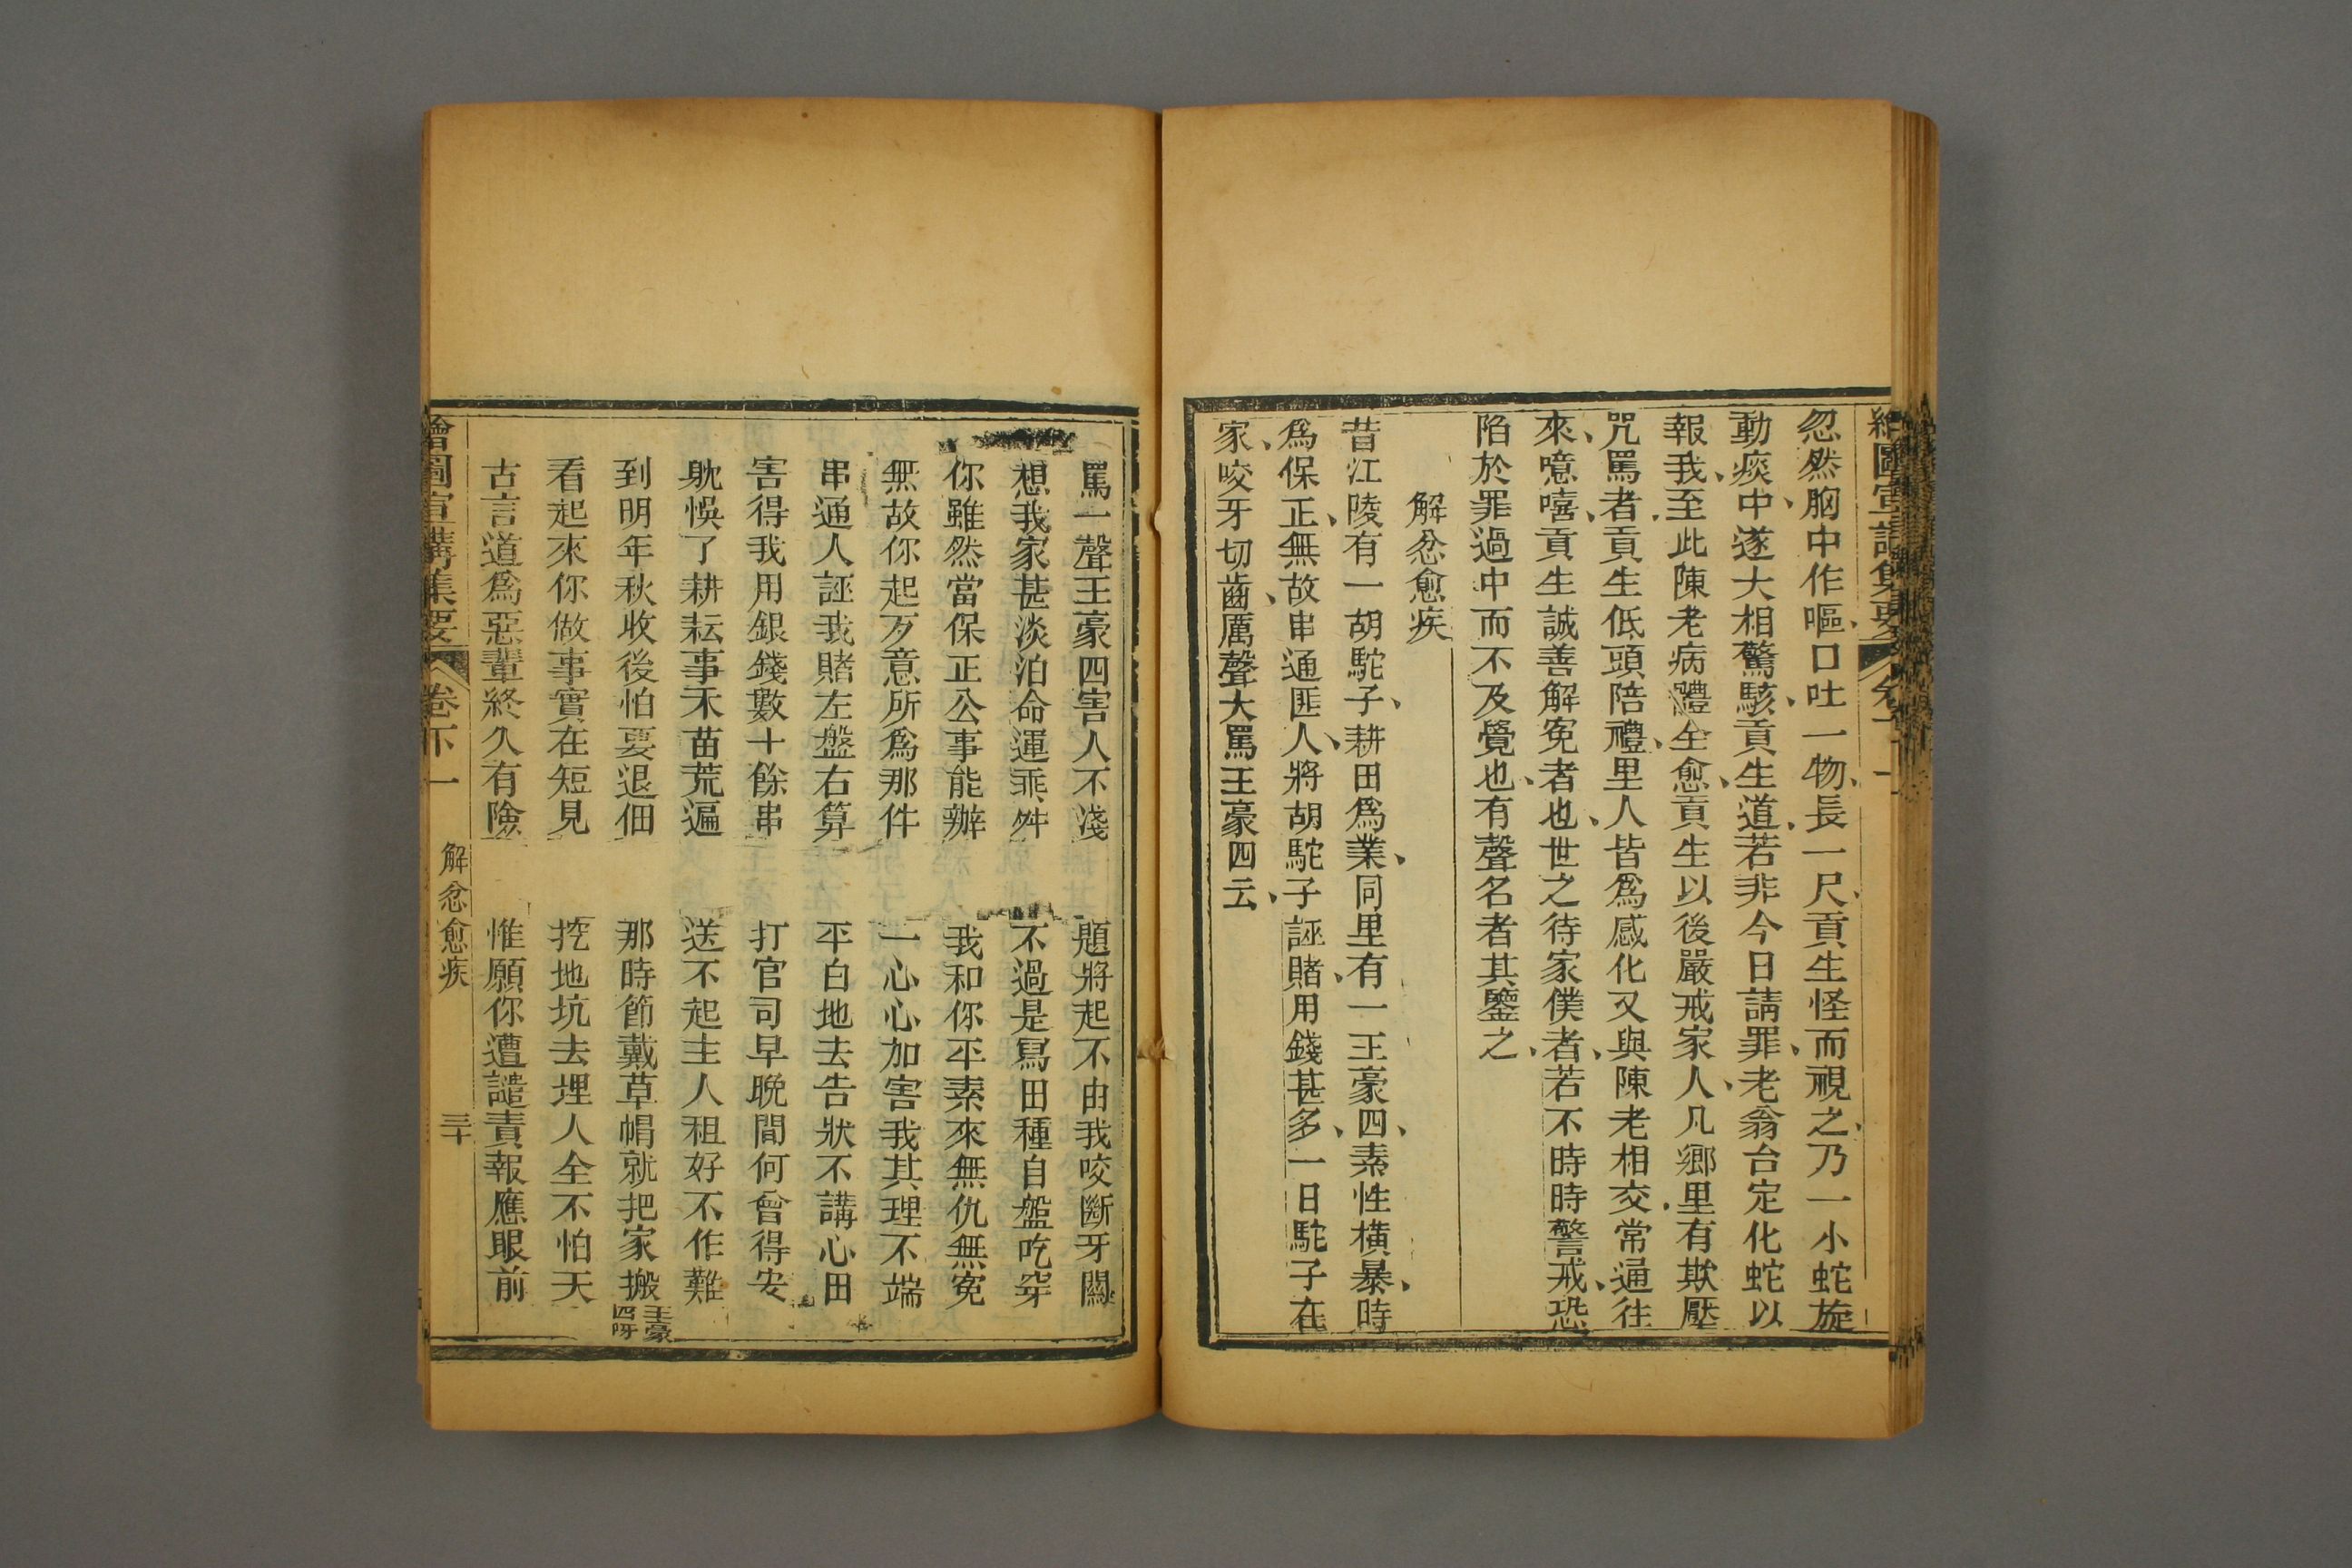 忽然胸中作嘔、口吐一物、長一尺、貢生怪而視之、乃一小蛇旋
動痰中、遂大相驚駭、貢生道、若非今日請罪、老翁台定化蛇以
報我、至此陳老病體全愈、貢生以後嚴戒家人、凡鄉里有欺壓
咒罵者、貢生低頭陪禮、里人皆爲感化又與陳老相交常通往
來、噫嘻、貢生誠善解寃者也、世之待家僕者、若不時時警戒、恐
陷於罪過中而不及覺也、有聲名者其鑒之、
解忿愈疾
昔江陵有一胡駝子、耕田爲業、同里有一王豪四、素性橫暴、時
爲保正、無故串通匪人、將胡駝子誣賭、用錢甚多、一日駝子在
家、咬牙切齒、厲聲大罵王豪四云、
罵一聲王豪四害人不淺　題將起不由我咬斷牙關
想我家甚淡泊命運乖舛　不過是寫田種自盤吃穿
你雖然當保正公事能辦　我和你平素來無仇無寃
無故你起歹意所爲那件　一心心加害我其理不端
串通人誣我賭左盤右算　平白地去告狀不講心田
害得我用銀錢數十餘串　打官司早晚間何曾得安
躭悞了耕耘事禾苗荒遍　送不起主人租好不作難
到明年秋收後怕要退佃　那時節戴草帽就把家搬 王豪四呀
看起來你做事實在短見　挖地坑去埋人全不怕天
古言道爲惡輩終久有險　惟願你遭譴責報應眼前
繪圖宣講集要 卷下一 解忿愈疾 三十